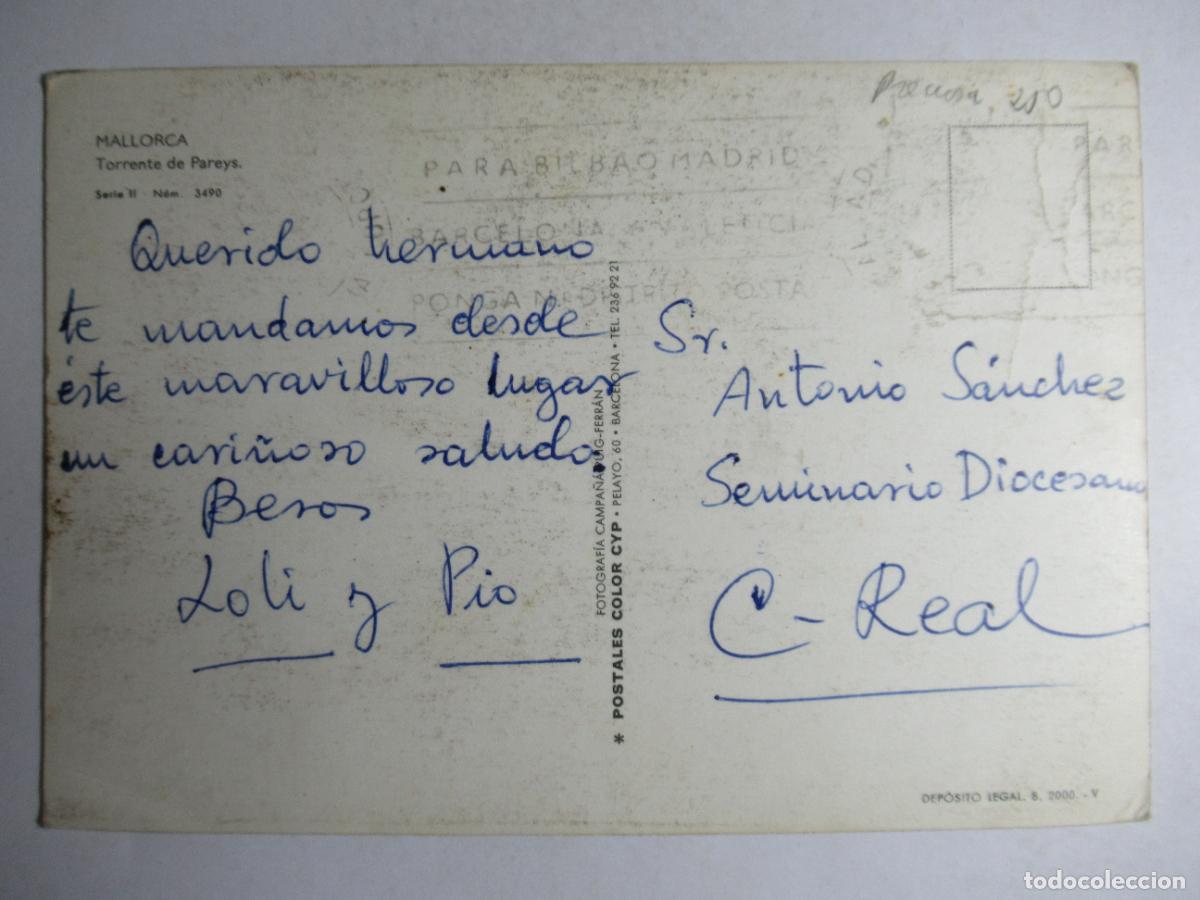 250
MALLORCA
Torrente de Pareys.
Serie II Núm. 3490
PARA BILBAO MADRID
BARCELONA
PONGA POSTA
PAR
ARC
Querido hermano
te mandamos desde
éste maravilloso lugar
un cariñoso saludo.
Besos
Loli y Pio
FOTOGRAFÍA CAMPAÑÁ-PUIG-FERRÁN
* POSTALES COLOR CYP • PELAYO, 60 • BARCELONA • TEL. 236 92 21
Sr.
Antonio Sánchez
Seminario Diocesano
C-Real
DEPÓSITO LEGAL. B. 2000. - V
todocoleccion